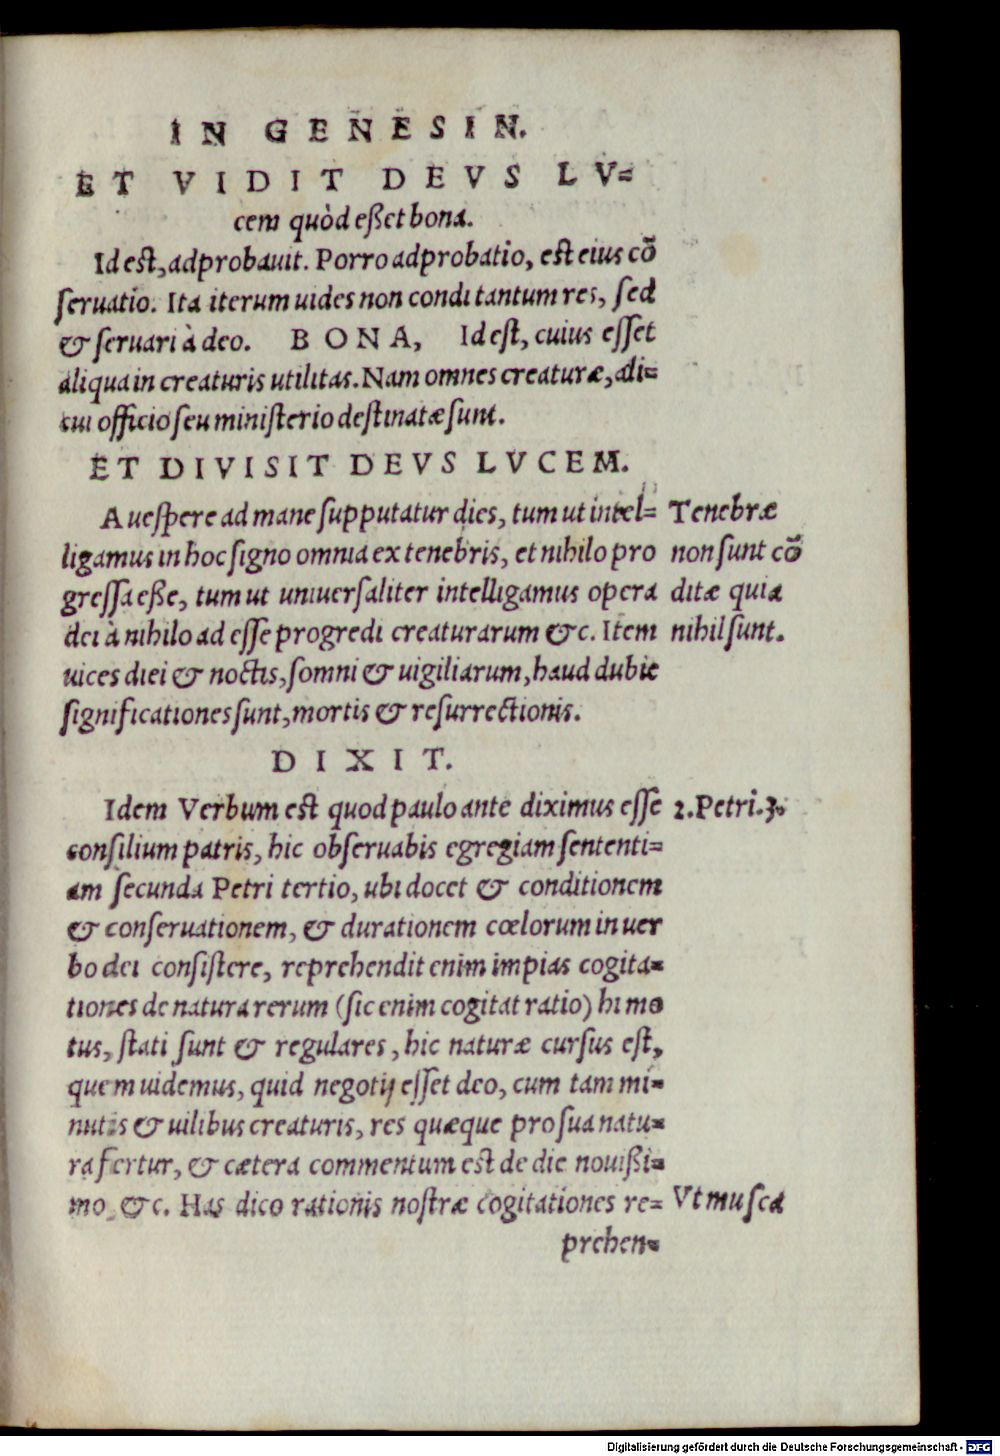 IN GENESIN.
ET VIDIT DEVS LV=
cem quòd eßet bona.
Id est, adprobauit. Porro adprobatio, est eius cō
ſeruatio. Ita iterum uides non condi tantum res, ſed
& ſeruari à deo. BONA, Id eſt, cuius eſſet
aliqua in creaturis utilitas. Nam omnes creaturæ, ali=
cui officio ſeu miniſterio deſtinatæ ſunt.
ET DIVISIT DEVS LVCEM.
A ueſpere ad mane ſupputatur dies, tum ut intel=
Tenebræ
ligamus in hoc ſigno omnia ex tenebris, et nihilo pro
non ſunt cō
greſſa eße, tum ut uniuerſaliter intelligamus opera
ditæ quia
dei à nihilo ad eſſe progredi creaturarum &c. Item
nihil ſunt.
uices diei & noctis, ſomni & uigiliarum, haud dubie
ſignificationes ſunt, mortis & reſurrectionis.
DIXIT.
Idem Verbum est quod paulo ante diximus eſſe
2. Petri. 3.
conſilium patris, hic obſeruabis egregiam ſententi=
am ſecunda Petri tertio, ubi docet & conditionem
& conſeruationem, & durationem cœlorum in uer
bo dei conſiſtere, reprehendit enim impias cogita=
tiones de natura rerum (ſic enim cogitat ratio) hi mo
tus, ſtati ſunt & regulares, hic naturæ curſus eſt,
quem uidemus, quid negotij eſſet deo, cum tam mi=
nutis & uilibus creaturis, res quæque pro ſua natu=
ra fertur, & cætera commentum est de die nouißi=
mo, &c. Has dico rationis noſtræ cogitationes re=
Vt muſca
prehen=
Digitalisierung gefördert durch die Deutsche Forschungsgemeinschaft - DFG